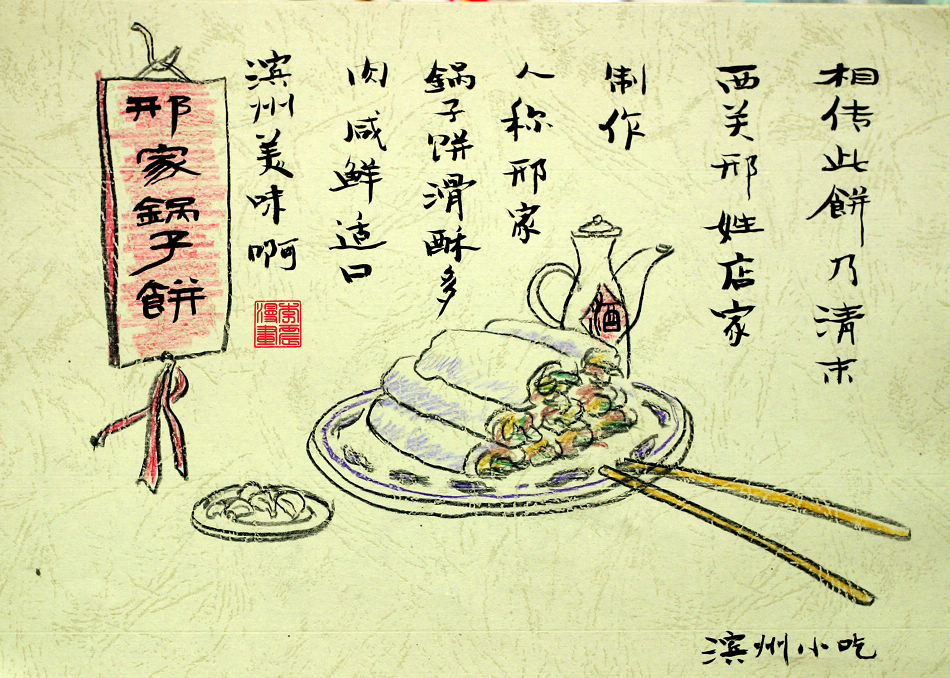 相传此餅乃清末
西关邢姓店家
制作
人称邢家
鍋子饼滑酥多
肉咸鲜适口
滨州美味啊
邢家鍋子餅
酒
漫畫
滨州小吃